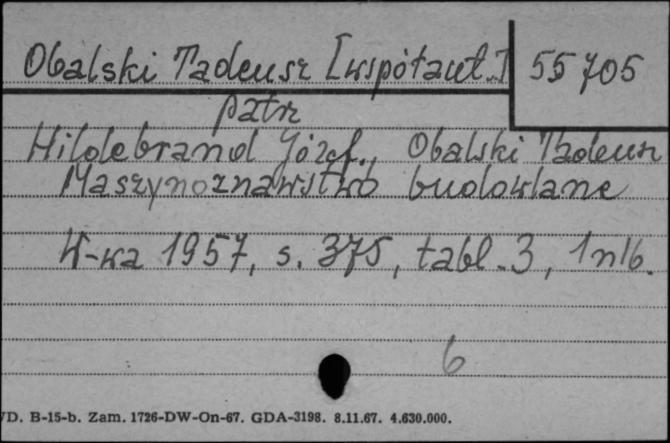 Obalski Tadeusz [współaut.] 55705
patrz
Hildebrand Józef., Obalski Tadeusz
Maszynoznawstwo budowlane
W-wa 1957, s. 375, tabl. 3, 1 nlb.
6
VD. B-15-b. Zam. 1726-DW-On-67. GDA-3198. 8.11.67. 4.630.000.